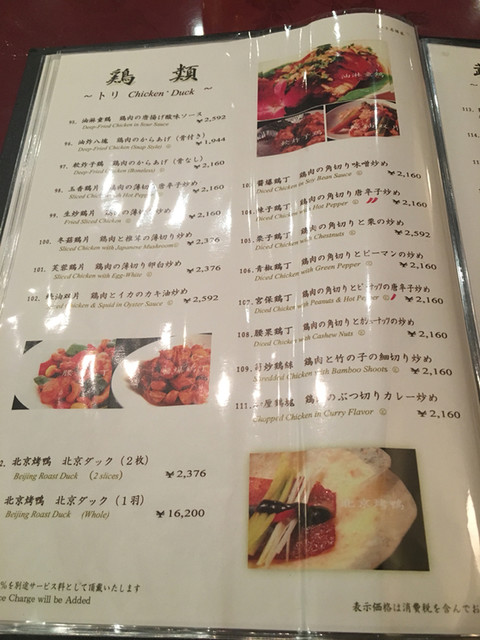 鶏類
～トリ Chicken・Duck ～
95. 油淋童鶏 鶏肉の唐揚げ酸味ソース
Deep-Fried Chicken in Sour Sauce
2,592
96. 油炸八塊 鶏肉のからあげ（骨付き）
1,944
97. 軟炸子鶏 鶏肉のからあげ（骨なし）
Deep-Fried Chicken (Boneless)
2,160
98. 五香鶏片 鶏肉の薄切り唐辛子炒め
Sliced Chicken with Hot Pepper
2,160
99. 生炒鶏片
Fried Sliced Chicken
2,160
100. 冬菇鶏片 鶏肉と椎茸の薄切り炒め
Sliced Chicken with Japanese Mushroom
2,376
101. 芙蓉鶏片 鶏肉の薄切り卵白炒め
Sliced Chicken with Egg-White
2,376
102. 鶏肉とイカのカキ油炒め
Chicken & Squid in Oyster Sauce
2,592
北京烤鴨 北京ダック（2枚）
Beijing Roast Duck (2 slices)
2,376
北京烤鴨 北京ダック（1羽）
Beijing Roast Duck (Whole)
16,200
%を別途サービス料として頂戴いたします
Charge will be Added
醤爆鶏丁 鶏肉の角切り味噌炒め
Diced Chicken in Soy Bean Sauce
2,160
辣子鶏丁 鶏肉の角切り唐辛子炒め
Diced Chicken with Hot Pepper
2,160
105. 栗子鶏丁 鶏肉の角切りと栗の炒め
Diced Chicken with Chestnuts
2,592
106. 青椒鶏丁 鶏肉の角切りとピーマンの炒め
Diced Chicken with Green Pepper
2,160
107. 宮保鶏丁 鶏肉の角切りとピーナッツの唐辛子炒め
Diced Chicken with Peanuts & Hot Pepper
2,160
108. 腰果鶏丁 鶏肉の角切りとカシューナッツの炒め
Diced Chicken with Cashew Nuts
2,160
109. 鶏肉と竹の子の細切り炒め
Shredded Chicken with Bamboo Shoots
2,160
111. 鶏肉のぶつ切りカレー炒め
Chopped Chicken in Curry Flavor
2,160
表示価格は消費税を含んでお